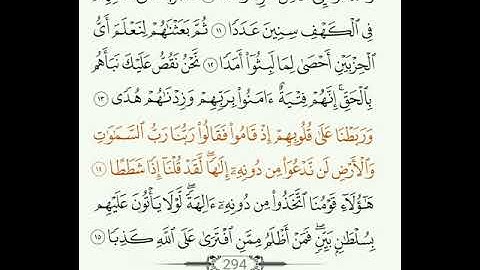 فِى ٱلْكَهْفِ سِنِينَ عَدَدًا ١١ ثُمَّ بَعَثْنَٰهُمْ لِنَعْلَمَ أَىُّ
ٱلْحِزْبَيْنِ أَحْصَىٰ لِمَا لَبِثُوٓا۟ أَمَدًا ١٢ نَّحْنُ نَقُصُّ عَلَيْكَ نَبَأَهُم
بِٱلْحَقِّ ۚ إِنَّهُمْ فِتْيَةٌ ءَامَنُوا۟ بِرَبِّهِمْ وَزِدْنَٰهُمْ هُدًى ١٣
وَرَبَطْنَا عَلَىٰ قُلُوبِهِمْ إِذْ قَامُوا۟ فَقَالُوا۟ رَبُّنَا رَبُّ ٱلسَّمَٰوَٰتِ
وَٱلْأَرْضِ لَن نَّدْعُوَا۟ مِن دُونِهِۦٓ إِلَٰهًا ۖ لَّقَدْ قُلْنَآ إِذًا شَطَطًا ١٤
هَٰٓؤُلَآءِ قَوْمُنَا ٱتَّخَذُوا۟ مِن دُونِهِۦٓ ءَالِهَةً ۖ لَّوْلَا يَأْتُونَ عَلَيْهِم
بِسُلْطَٰنٍۭ بَيِّنٍ ۖ فَمَنْ أَظْلَمُ مِمَّنِ ٱفْتَرَىٰ عَلَى ٱللَّهِ كَذِبًا ١٥
294